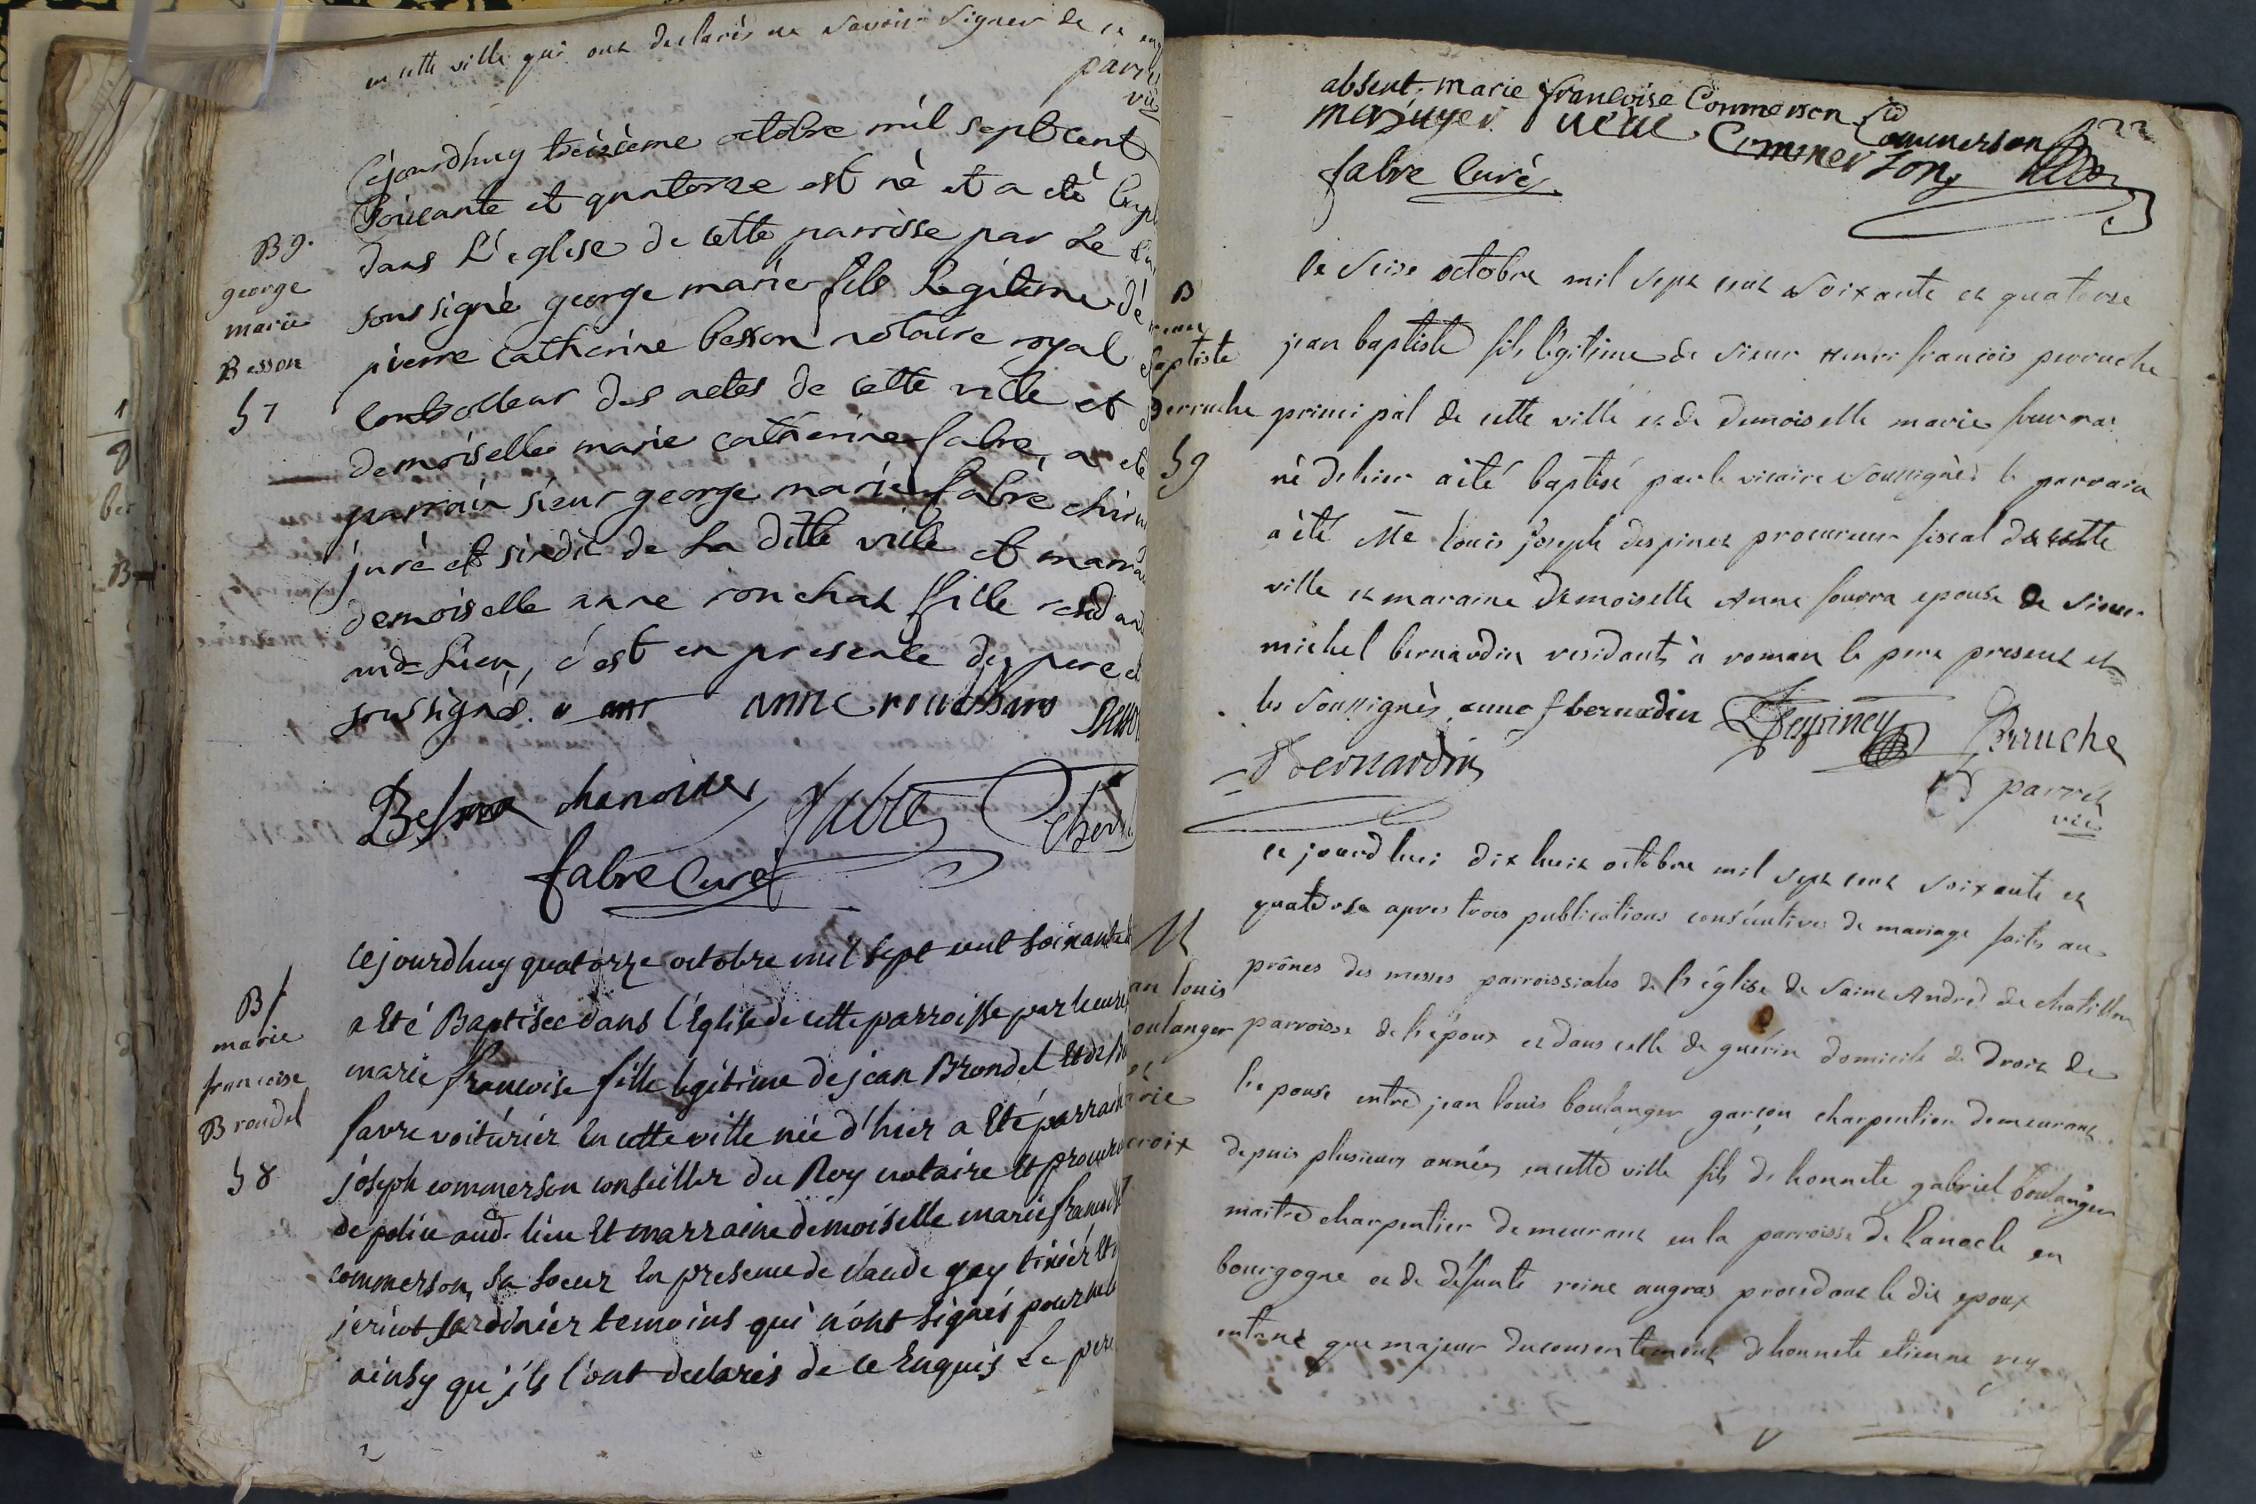 en cette ville qui ont declarés ne savoir signer de ce enq
parre
vic
Cejourdhuy treisieme octobre mil sept cent
soixante et quatorze est né et a eté bapt
dans L'eglise de cette parrisse par Le
soussigné george marie fils Legitime de
pierre catherine besson notaire royal
controlleur des actes de cette ville et
demoiselle marie catherine fabre, a eté
parrain sieur george marie fabre chirur
juré et sindic de La ditte ville et marra
demoiselle anne ronchat fille resid
aud. lieu, c'est en presence du pere et
soussignés
B 9.
george
marie
Besson
57
Besson chanoine fabre
fabre Curé
Cejourdhuy quatorze octobre mil sept cent soixante
a été Baptisée dans l'Eglise de cette parroisse par le curé
marie francoise fille legitime de jean Brondel et de
favre voiturier en cette ville née d'hier a été parrain
joseph commerson conseiller du Roy notaire et procureur
de police aud. lieu et marraine demoiselle marie francoise
commerson, sa soeur en presence de claude gay
jericot jardinier temoins qui n'ont signés pour
ainsy qu'ils l'ont declarés de ce Enquis Le pere
B
marie
francoise
Brondel
58
absent. marie francoise Commerson
Commerson
22
Commerson
fabre Curé
le seise octobre mil sept cent soixante et quatorze
jean baptiste fils legitime de sieur henri francois perruche
principal de cette ville et de demoiselle marie fourra
né de hier a été baptisé par le vicaire soussigné le parrain
a été Me louis joseph despiney procureur fiscal de cette
ville et maraine demoiselle Anne fourra epouse de sieur
michel bernardin residants à roman le pere present et
les soussignés anne f bernardin Despiney Perruche
Bernardin
parre
vic
B
Baptiste
perruche
59
ce jourd'hui dix huit octobre mil sept cent soixante et
quatorse apres trois publications consécutives de mariage faites au
prônes des messes parroissiales de l'église de saint André de chatillon
parroisse de l'époux et dans celle de guérin domicile de droit de
l'epouse entre jean louis boulanger garçon charpentier demeurant
depuis plusieurs années en cette ville fils de honnete gabriel boulanger
maitre charpentier demeurant en la parroisse de en
bourgogne et de défunte reine augras procedant le dit epoux
entant que majeur du consentement de honnete etienne rey
M
an louis
oulanger
et
arie
croix